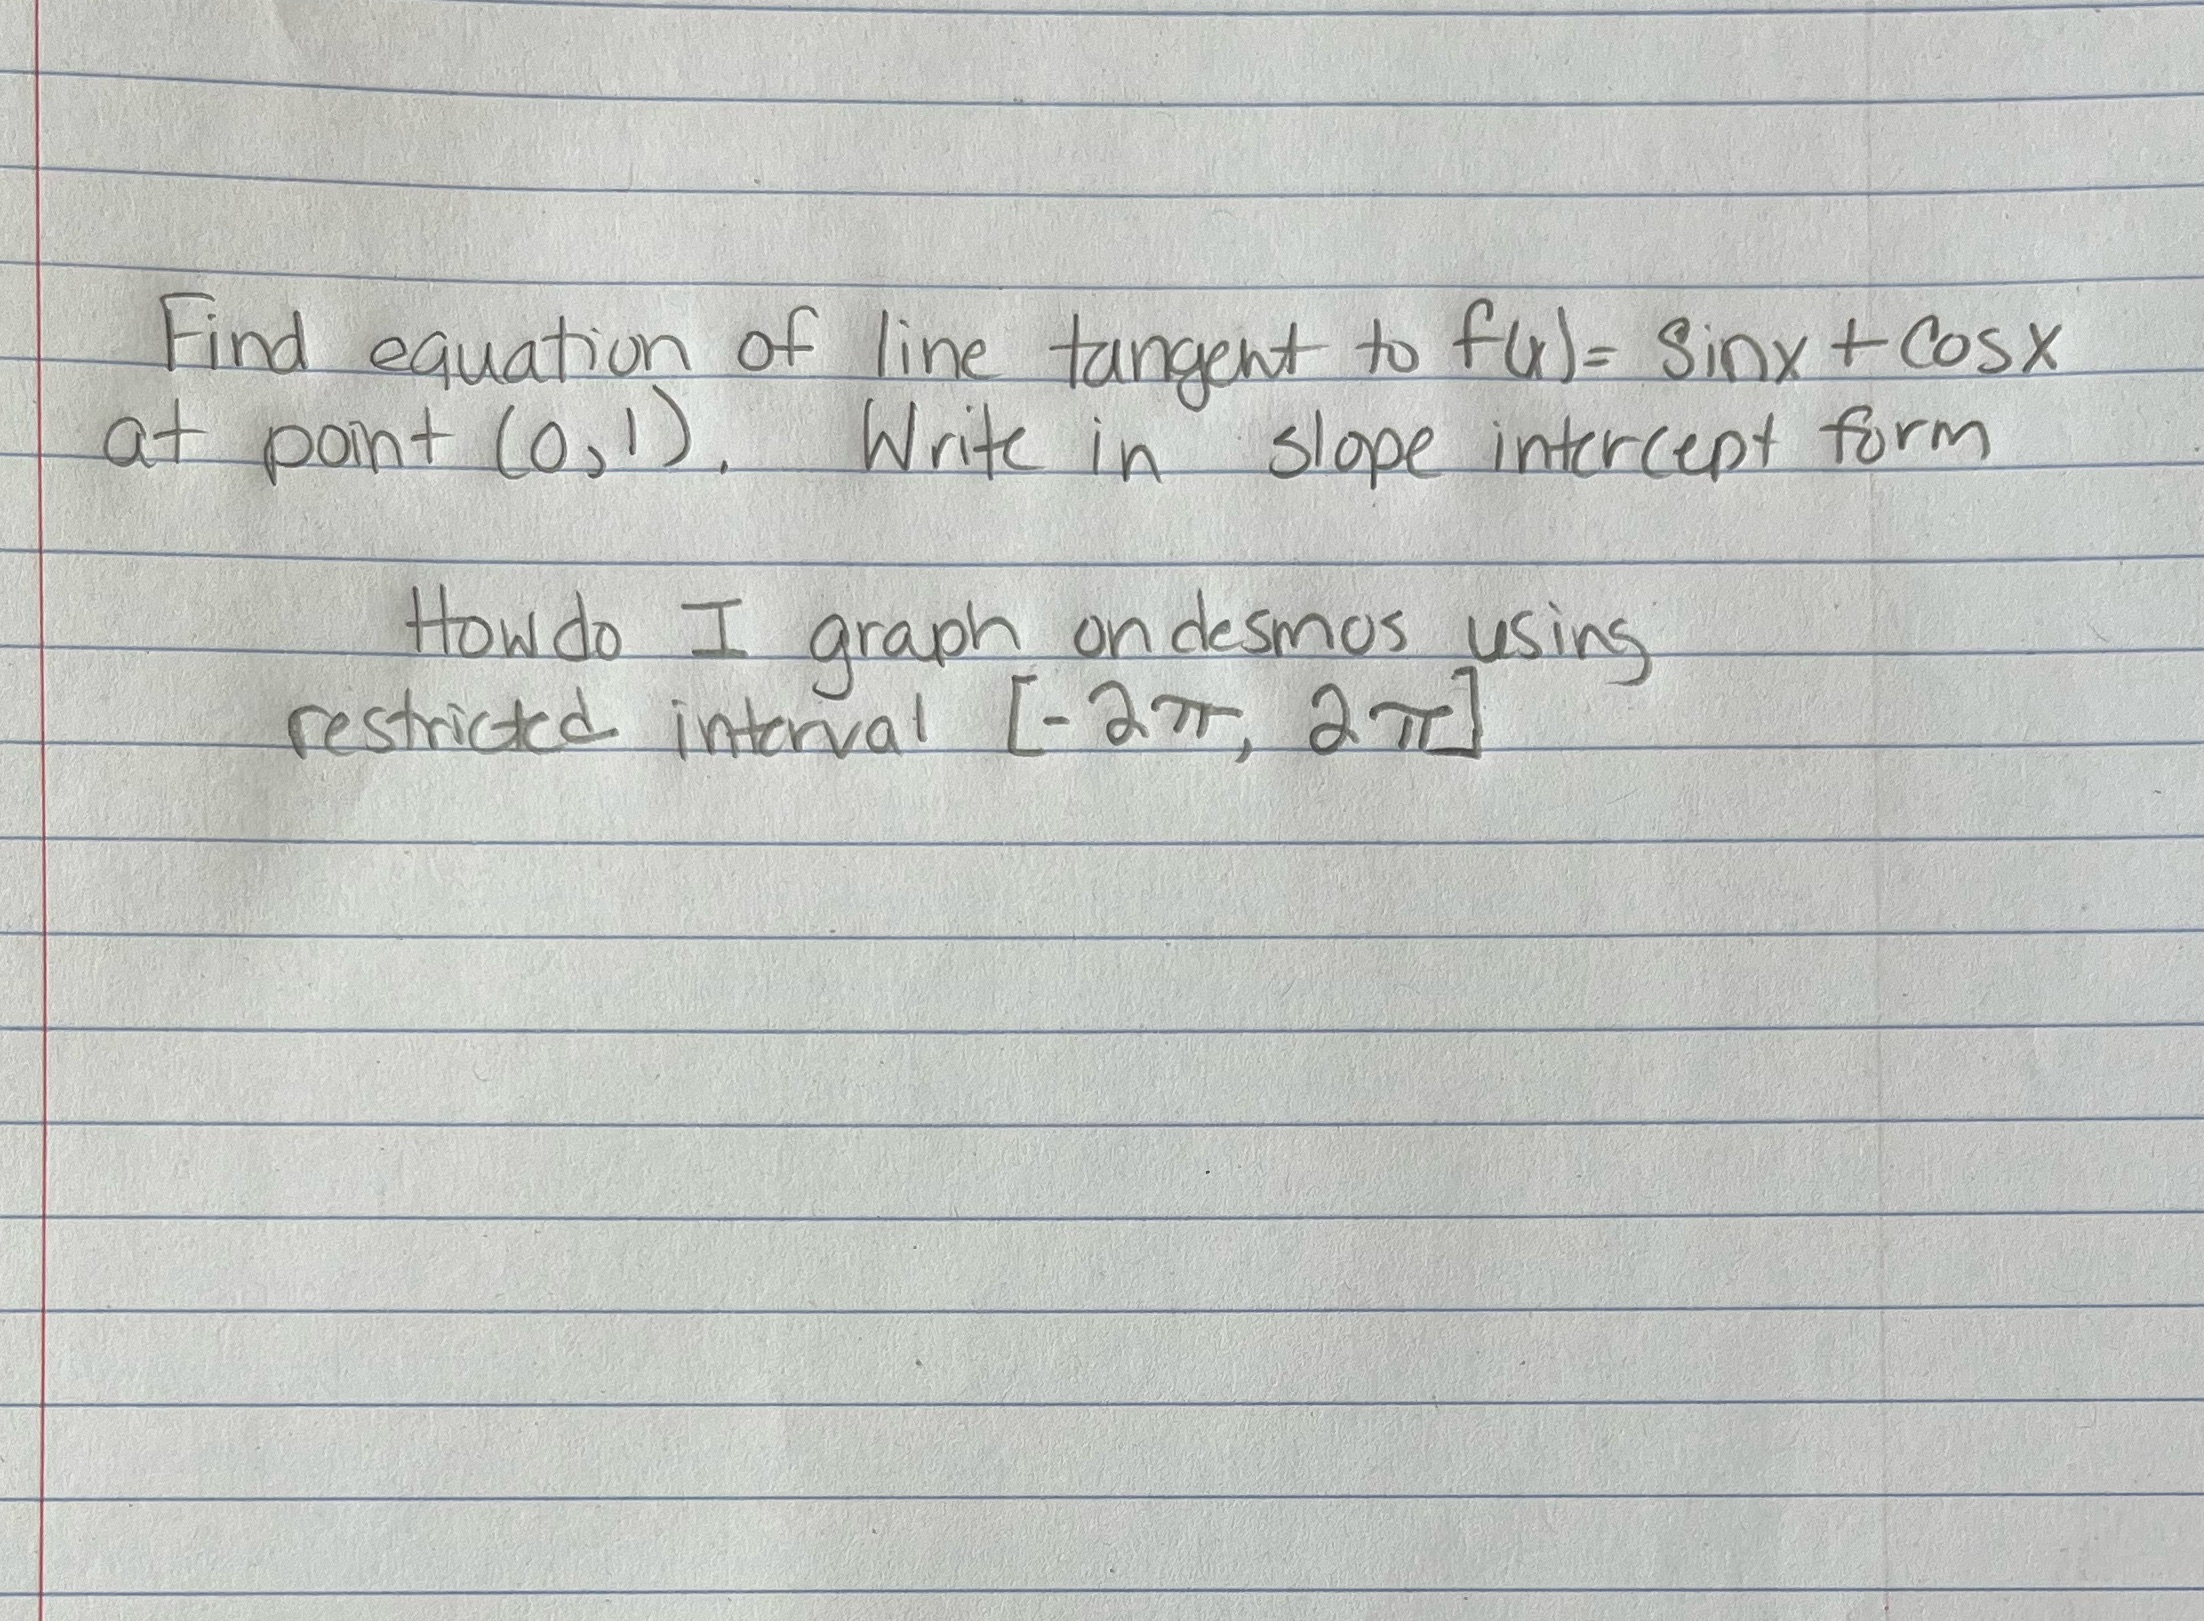 Find equation of line tangent to f(x)= sinx + cosx
at point (0,1). Write in slope intercept form
How do I graph on desmos using
restricted interval [-2π, 2π]